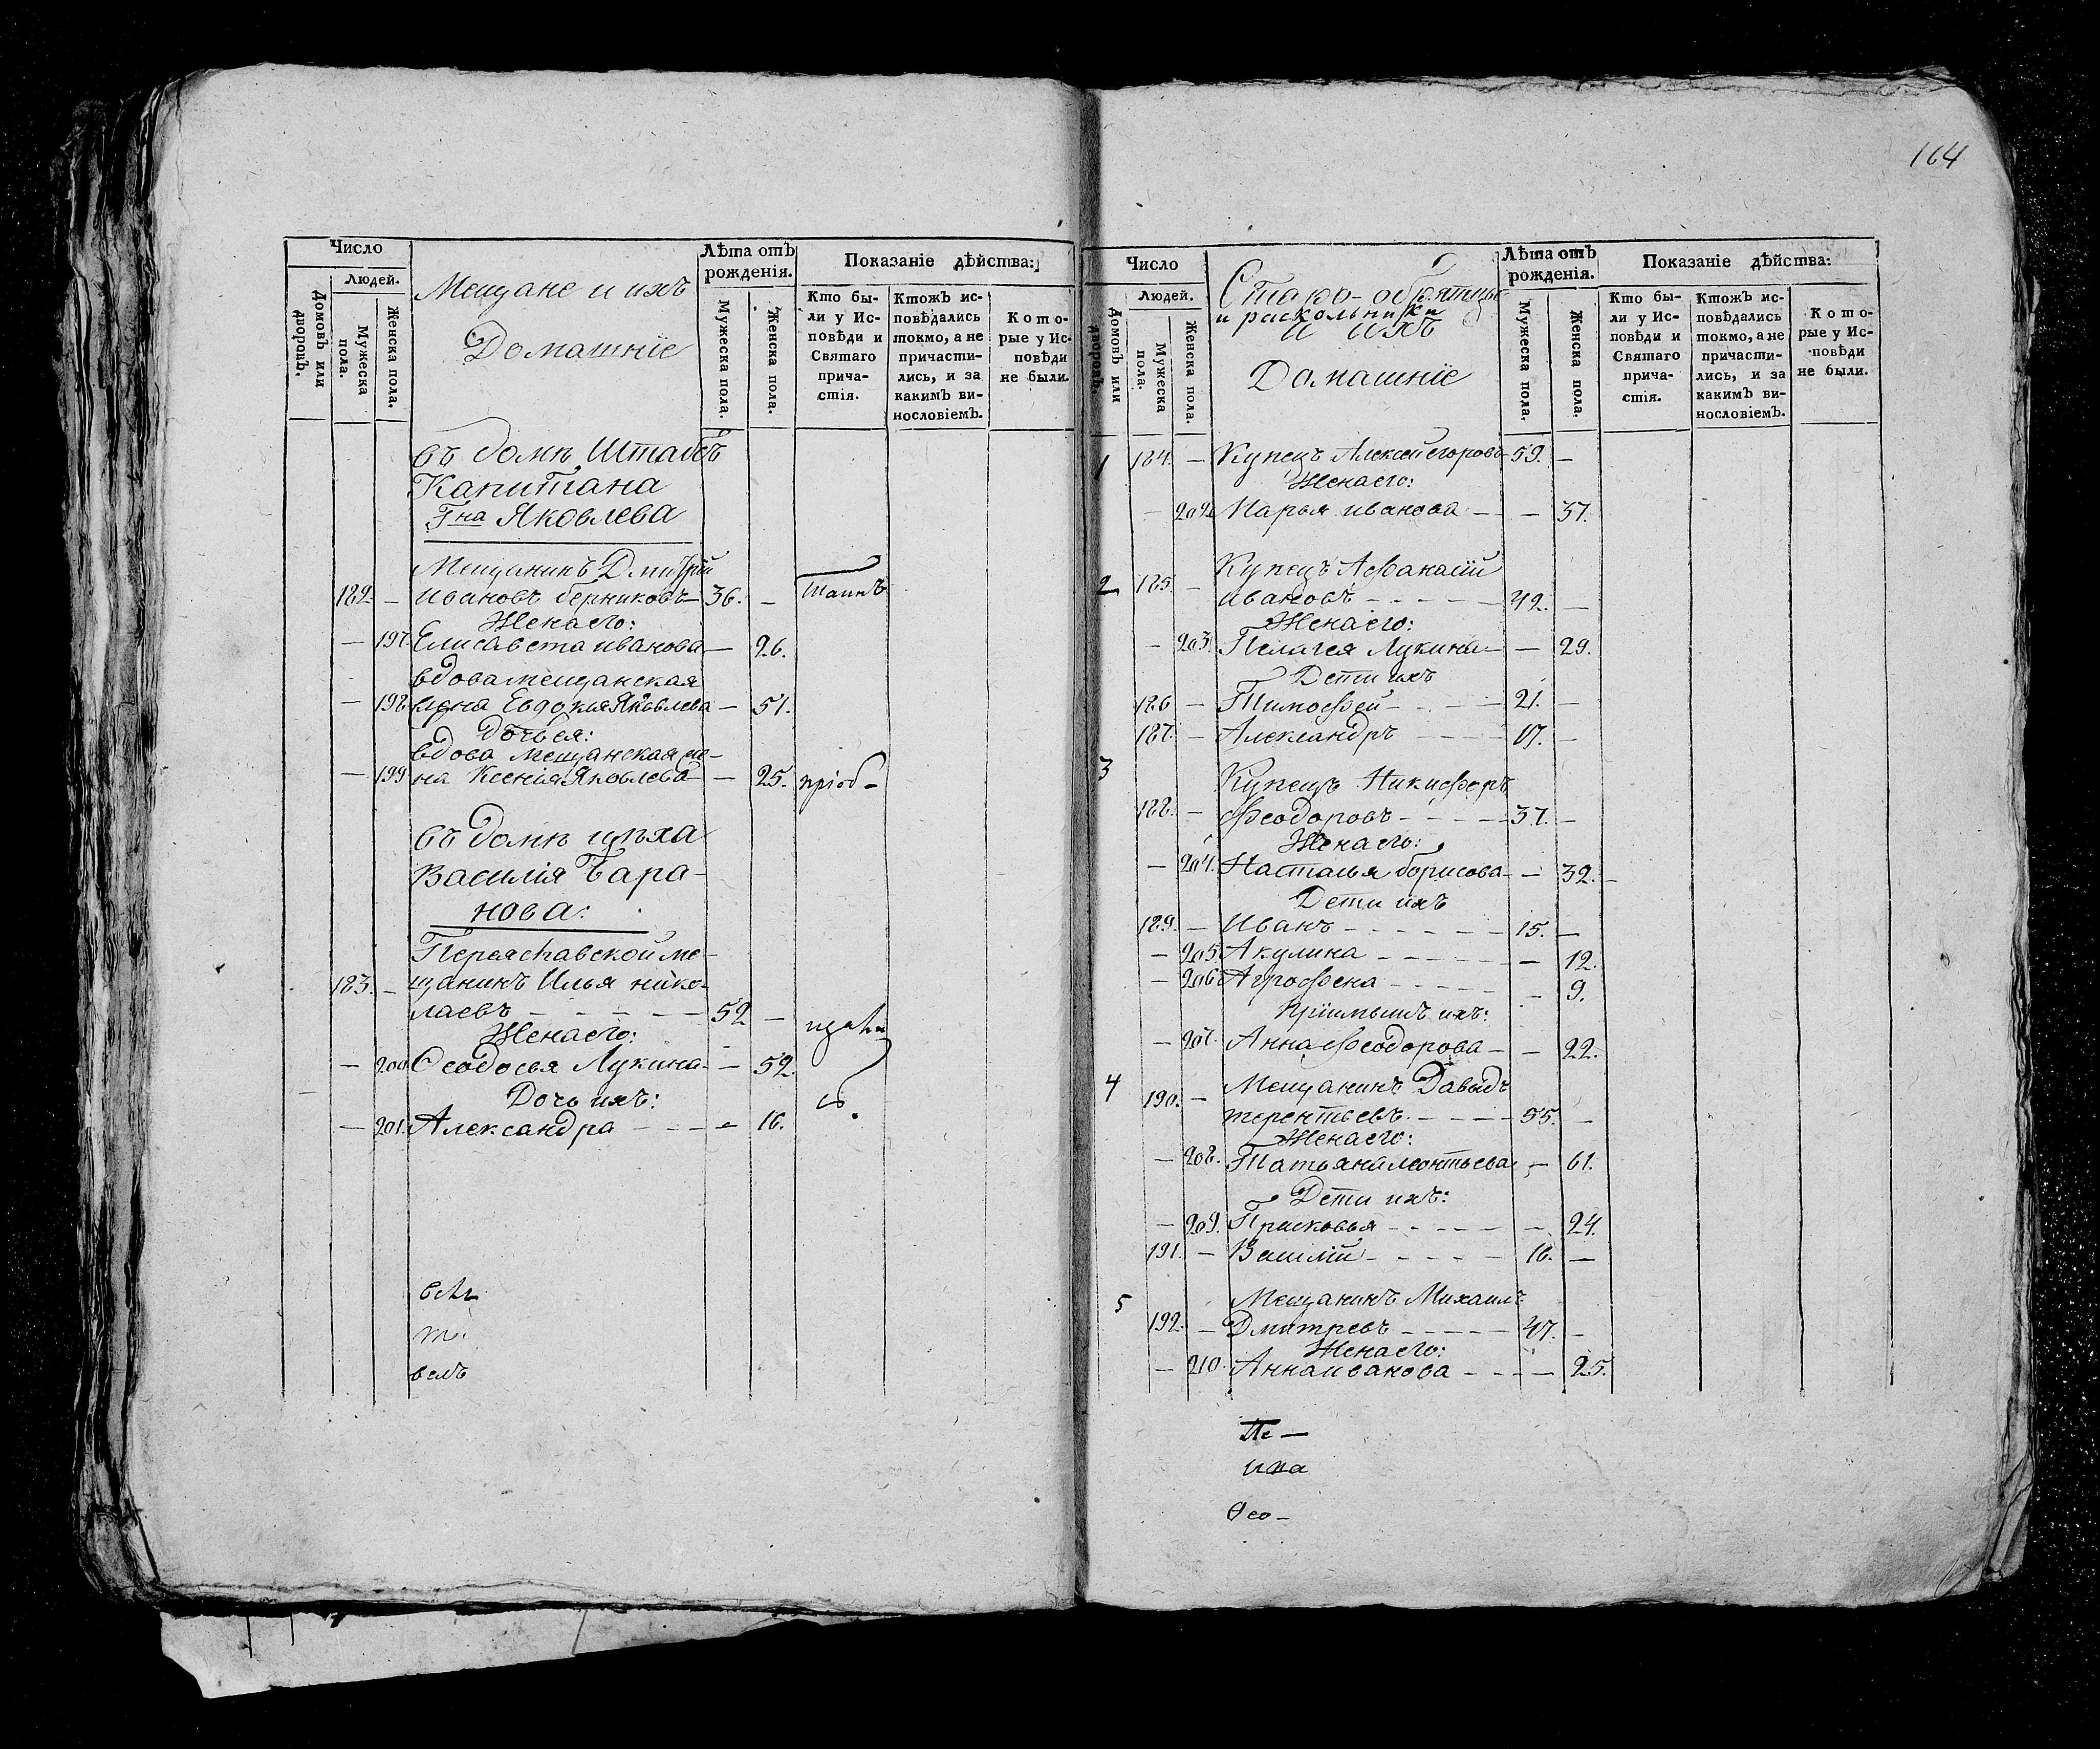 Число
Людей.
Домовъ или дворовъ.
Мужеска пола.
Женска пола.
Мещане и ихъ
Домашніе
Лѣта отъ рожденія.
Мужеска пола.
Женска пола.
Показаніе дѣйства:
Кто были у Исповѣди и Святаго причастія.
Ктожъ исповѣдались токмо, а не причастились, и за какимъ винословіемъ.
Которые у Исповѣди не были.
въ домѣ Штабсъ
Капитана
Гна Яковлева
Мещанинъ Дмитрій
182. — Ивановъ Берниковъ — 36. —
Жена его:
— 197. Елисавета иванова — 26.
вдова мещанская
— 198. жена Евдокия Яковлева — 51.
Дочь ея:
вдова мещанская же-
— 199 на Ксения Яковлева — 25. пріоб-
въ домѣ цѣха
Василія Бара-
нова:
Переяславской ме-
183. — щанинъ Илья нико-
лаевъ — — — — — 52 —
Жена его:
— 200 Феодосья Лукина — — 52.
Дочь ихъ:
— 201. Александра — — — — 16.
т.
164
Число
Людей.
Домовъ или дворовъ.
Мужеска пола.
Женска пола.
Старо-обрятцы
и раскольники
и ихъ
Домашніе
Лѣта отъ рожденія.
Мужеска пола.
Женска пола.
Показаніе дѣйства:
Кто были у Исповѣди и Святаго причастія.
Ктожъ исповѣдались токмо, а не причастились, и за какимъ винословіемъ.
Которые у Исповѣди не были.
1 184. — Купецъ Алексей егоровъ 59. —
Жена его:
— 202 Марья иванова — — 37.
Купецъ Афанасій
2 185. — ивановъ — — — — 42. —
Жена его:
— 203. Пелагея Лукина — — 29.
Дети ихъ
186 — Тимофей — — — — 21. —
187. — Александръ — — — 17. —
3 Купецъ Никифоръ
188. — Феодоровъ — — — — 37. —
Жена его:
— 204. Наталья борисова — — 32. —
Дети ихъ
189. — Иванъ — — — — — 15. —
— 205. Акулина — — — — — 12.
— 206 Агрофена — — — — — 9.
Пріимышъ ихъ:
— 207. Анна Феодорова — — 22.
4 Мещанинъ Давыдъ
190. — терентьевъ — — — — 55. —
Жена его:
— 208. Татьяна леонтьева — 61.
Дети ихъ:
— 209. Прасковья — — — — — 24.
191. — Василій — — — — — 16. —
5 Мещанинъ Михаилъ
192. — Дмитревъ — — — — 47. —
Жена его:
— 210. Анна иванова — — — — 25.
Ѳео —